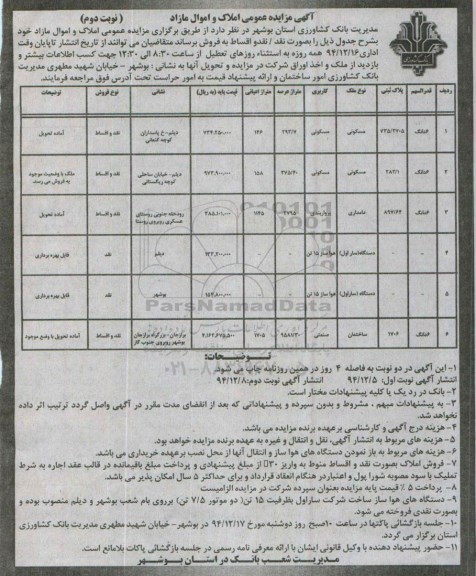 آگهی مزایده عمومی املاک و اموال مازاد ( نوبت دوم )
مدیریت بانک کشاورزی استان بوشهر در نظر دارد از طریق برگزاری مزایده عمومی املاک و اموال مازاد خود
بشرح جدول ذیل را بصورت نقد / نقدو اقساط به فروش برساند متقاضیان می توانند از تاریخ انتشار تاپایان وقت
اداری ۹۴/۱۲/۱۶ همه روزه به استثناء روزهای تعطیل از ساعت ۸:۳۰ الی ۱۲:۳۰ جهت کسب اطلاعات بیشتر و
بازدید از ملک و اخذ اوراق شرکت در مزایده و تحویل آنها به نشانی : بوشهر - خیابان شهید مطهری مدیریت
بانک کشاورزی امور ساختمان و ارائه پیشنهاد قیمت به امور حراست تحت آدرس فوق مراجعه فرمایند.
ردیف قدرالسهم پلاک ثبتی نوع ملک کاربری متراژ عرصه متراژ اعیانی قیمت پایه (به ریال) آدرس نوع فروش توضیحات
۱ ۶دانگ ۷۳۵/۲۷۰۵ مسکونی مسکونی ۲۹۲/۷ ۱۴۶ ۷۳۴,۲۵۰,۰۰۰ دیلم-خ پاسداران کوچه کنعانی نقد و اقساط آماده تحویل
۲ ۶دانگ ۲۸۲/۱ مسکونی مسکونی ۲۷۵/۴۰ ۱۵۸ ۹۷۳,۹۰۰,۰۰۰ دیلم- خیابان ساحلی کوچه ریگستانی نقد و اقساط ملک با وضعیت موجود به فروش می رسد.
۳ ۶دانگ ۸۹۷/۶۴ دامداری پرواربندی ۴۷۹۵ ۱۱۴۵ ۳۸۵,۱۰۱,۰۰۰ رودخانه جنوبی روستای عسکری روبروی روستا نقد و اقساط آماده تحویل
۴ - - دستگاه(ساراول) هوا ساز ۱۵ تن - - ۱۲۳,۲۰۰,۰۰۰ دیلم نقد قابل بهره برداری
۵ - - دستگاه (ساراول) هوا ساز ۱۵ تن - - ۱۵۴,۸۰۰,۰۰۰ بوشهر نقد قابل بهره برداری
۶ ۶دانگ ۱۷۰۶ ساختمان صنعتی ۹۵۸۱/۳۰ ۱۷۰۵ ۴,۱۶۲,۶۷۵,۵۰۰ برازجان- بزرگراه برازجان بوشهر روبروی جنوب گاز نقد و اقساط آماده تحویل با وضع موجود
ParsNamadData
توضیحات:
۱- این آگهی در دو نوبت به فاصله ۴ روز در همین روزنامه چاپ می شود.
انتشار آگهی نوبت اول: ۹۴/۱۲/۵ انتشار آگهی نوبت دوم: ۹۴/۱۲/۸
۲- بانک در رد یک یا کلیه پیشنهادات مختار است.
۳- به پیشنهادات مبهم ، مشروط و بدون سپرده و پیشنهاداتی که بعد از انقضای مدت مقرر در آگهی واصل گردد ترتیب اثر داده
نخواهد شد.
۴- هزینه درج آگهی و کارشناسی برعهده برنده مزایده می باشد.
۵- هزینه های مربوط به انتشار آگهی، نقل و انتقال و غیره به عهده برنده مزایده خواهد بود.
۶- هزینه های مربوط به باز نمودن دستگاه های هوا ساز و انتقال آنها از محل نصب برعهده خریداری می باشد.
۷- فروش املاک بصورت نقد و اقساط منوط به واریز ۳۰٪ از مبلغ پیشنهادی و پرداخت مبلغ باقیمانده در قالب عقد اجاره به شرط
تملیک با سود مصوبه شورا پول و اعتباردر هنگام انعقاد قرارداد و برای حداکثر ۵ سال امکان پذیر می باشد.
۸- پرداخت ۵ ٪ قیمت پایه مزایده بعنوان سپرده شرکت در مزایده الزامیست
۹- دستگاه های هوا ساز ساخت شرکت ساراول بظرفیت ۱۵ تن( دو موتور ۷/۵ تن) برروی بام شعب بوشهر و دیلم منصوب بوده و
بصورت نقدی فروخته می شود.
۱۰- جلسه بازگشائی پاکتها در ساعت ۱۰صبح روز دوشنبه مورخ ۹۴/۱۲/۱۷ در بوشهر- خیابان شهید مطهری مدیریت بانک کشاورزی
استان برگزار می گردد.
۱۱- حضور پیشنهاد دهنده با وکیل قانونی ایشان با ارائه معرفی نامه رسمی در جلسه بازگشائی پاکات بلامانع است.
مدیریت شعب بانک در استان بوشهر